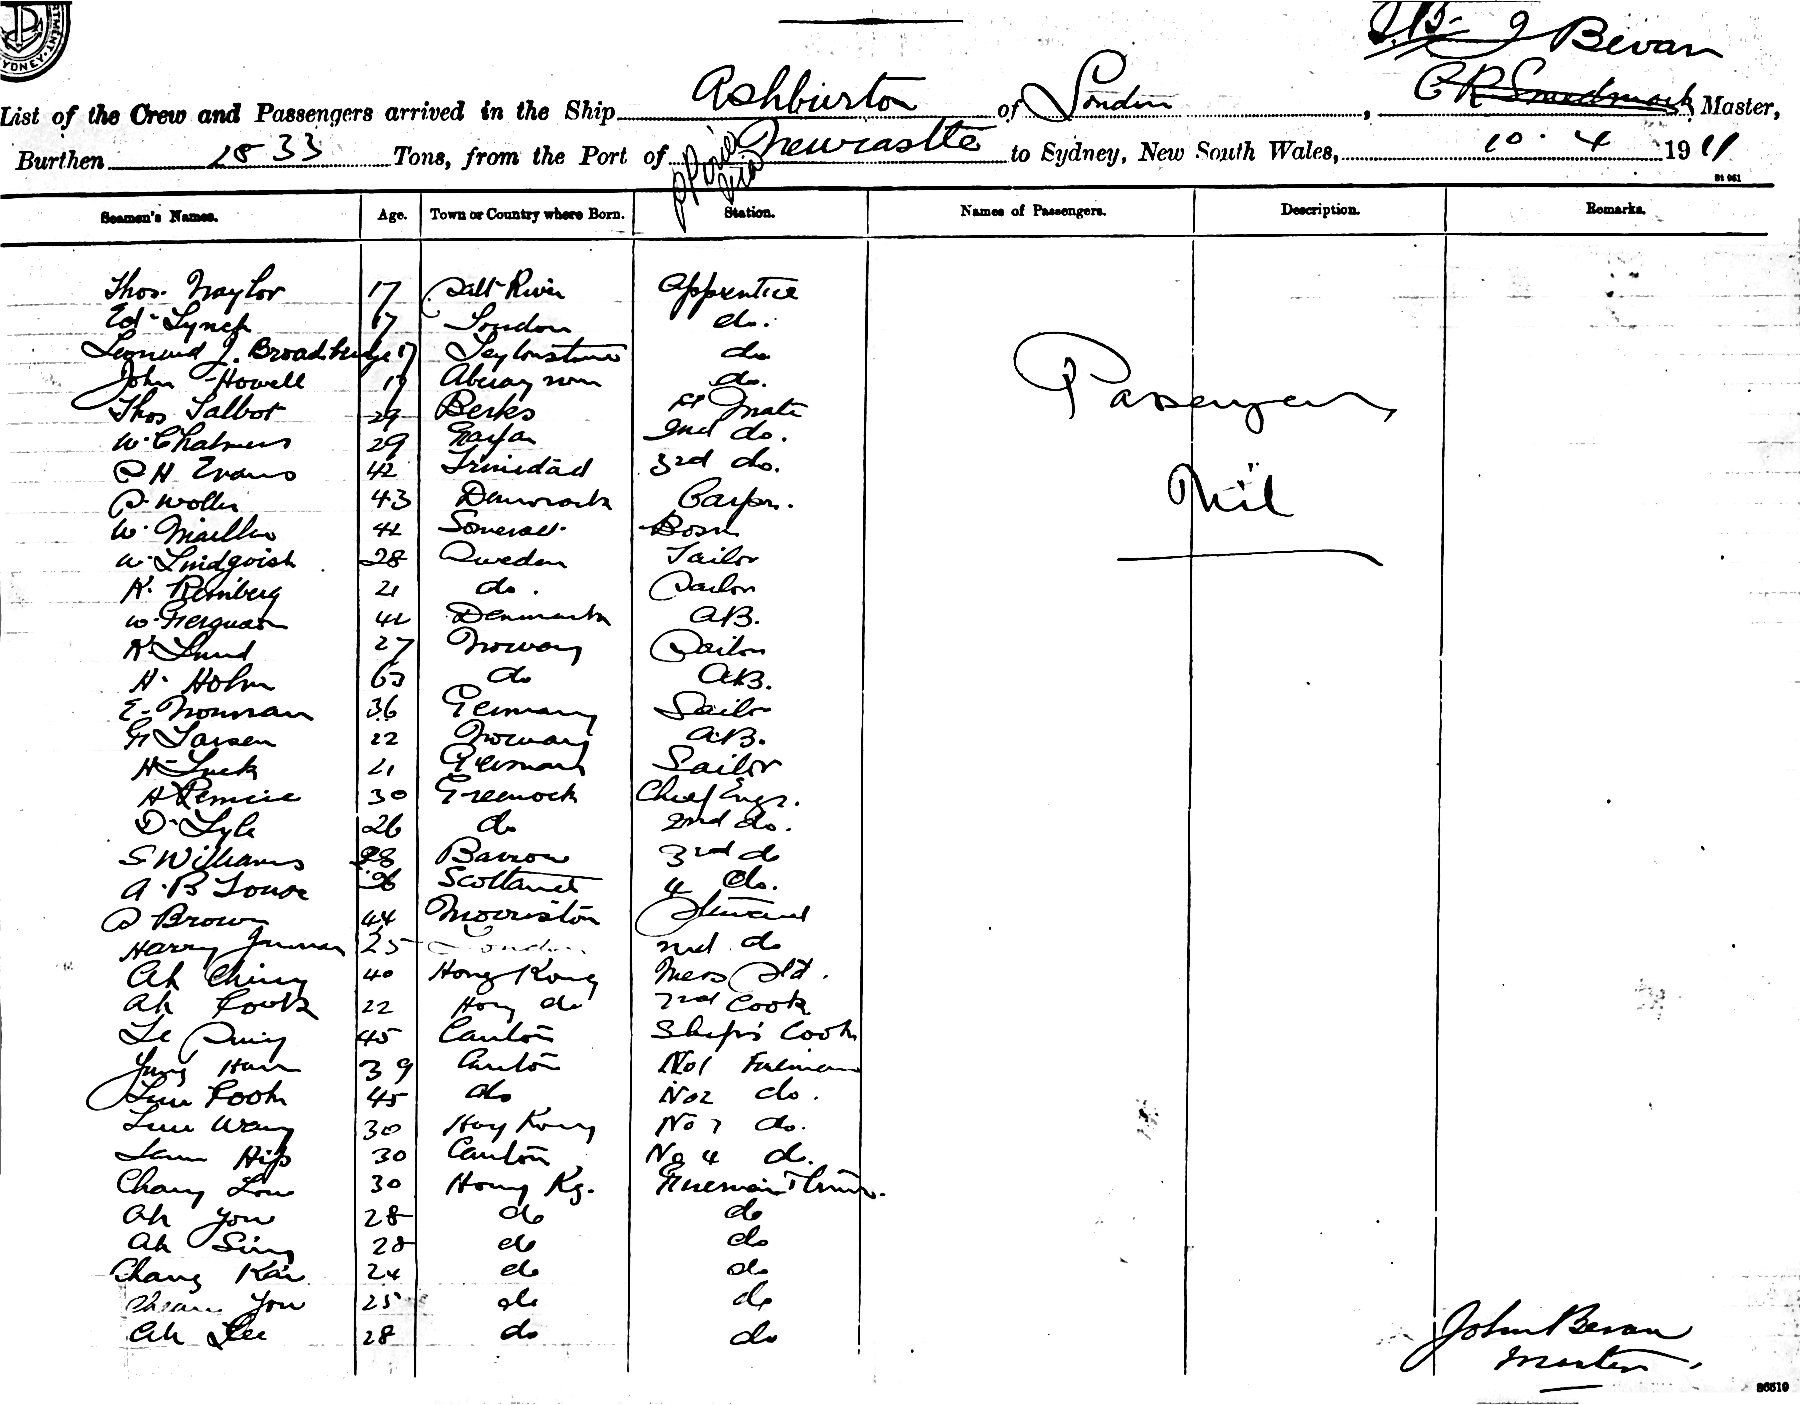 SYDNEY.
J Bevan
List of the Crew and Passengers arrived in the Ship Ashburton of London, Master,
Burthen 2833 Tons, from the Port of Newcastle to Sydney, New South Wales, 10. 4 1911
Seamen's Names. Age. Town or Country where Born. Station. Names of Passengers. Description. Remarks.
Thos. Naylor 17 Salt River Apprentice
Ed. Lynch 17 London do.
Leonard J. Broadbridge 17 Leytonstone do
John Howell 19 do.
Thos Talbot 29 Berks 1st Mate
W. Chalmers 29 2nd do.
P H Evans 42 Trinidad 3rd do.
43 Denmark Carpr.
W. Somerset Bosn
W. Lindqvist 28 Sweden Sailor
K. Reinberg 21 do. Sailor
W. Ferguson Denmark AB.
K Lund 27 Norway Sailor
H. Holm 63 do AB.
E. Norman 36 Germany Sailor
Larsen 22 Norway AB.
H Luck 21 Germany Sailor
A 30 Greenock Chief Engr.
D. Lyle 26 do 2nd do.
S Williams 28 Barrow 3rd do
A. B 26 Scotland 4 do.
Brown 44 Morriston Steward
Harry 25 London 2nd do
Ah Ching 40 Hong Kong Mess Std.
Ah 22 Hong do 2nd Cook
45 Canton Ship's Cook
39 Canton No 1 Fireman
45 do No 2 do.
30 Hong Kong No 3 do.
Hip 30 Canton No 4 do.
Chang Low 30 Hong Kg. Fireman
Ah You 28 do do
Ah Sing 28 do do
Chang Kai 24 do do
You 25 do do
Ah Lee 28 do do
Passengers
Nil
John Bevan
Master.